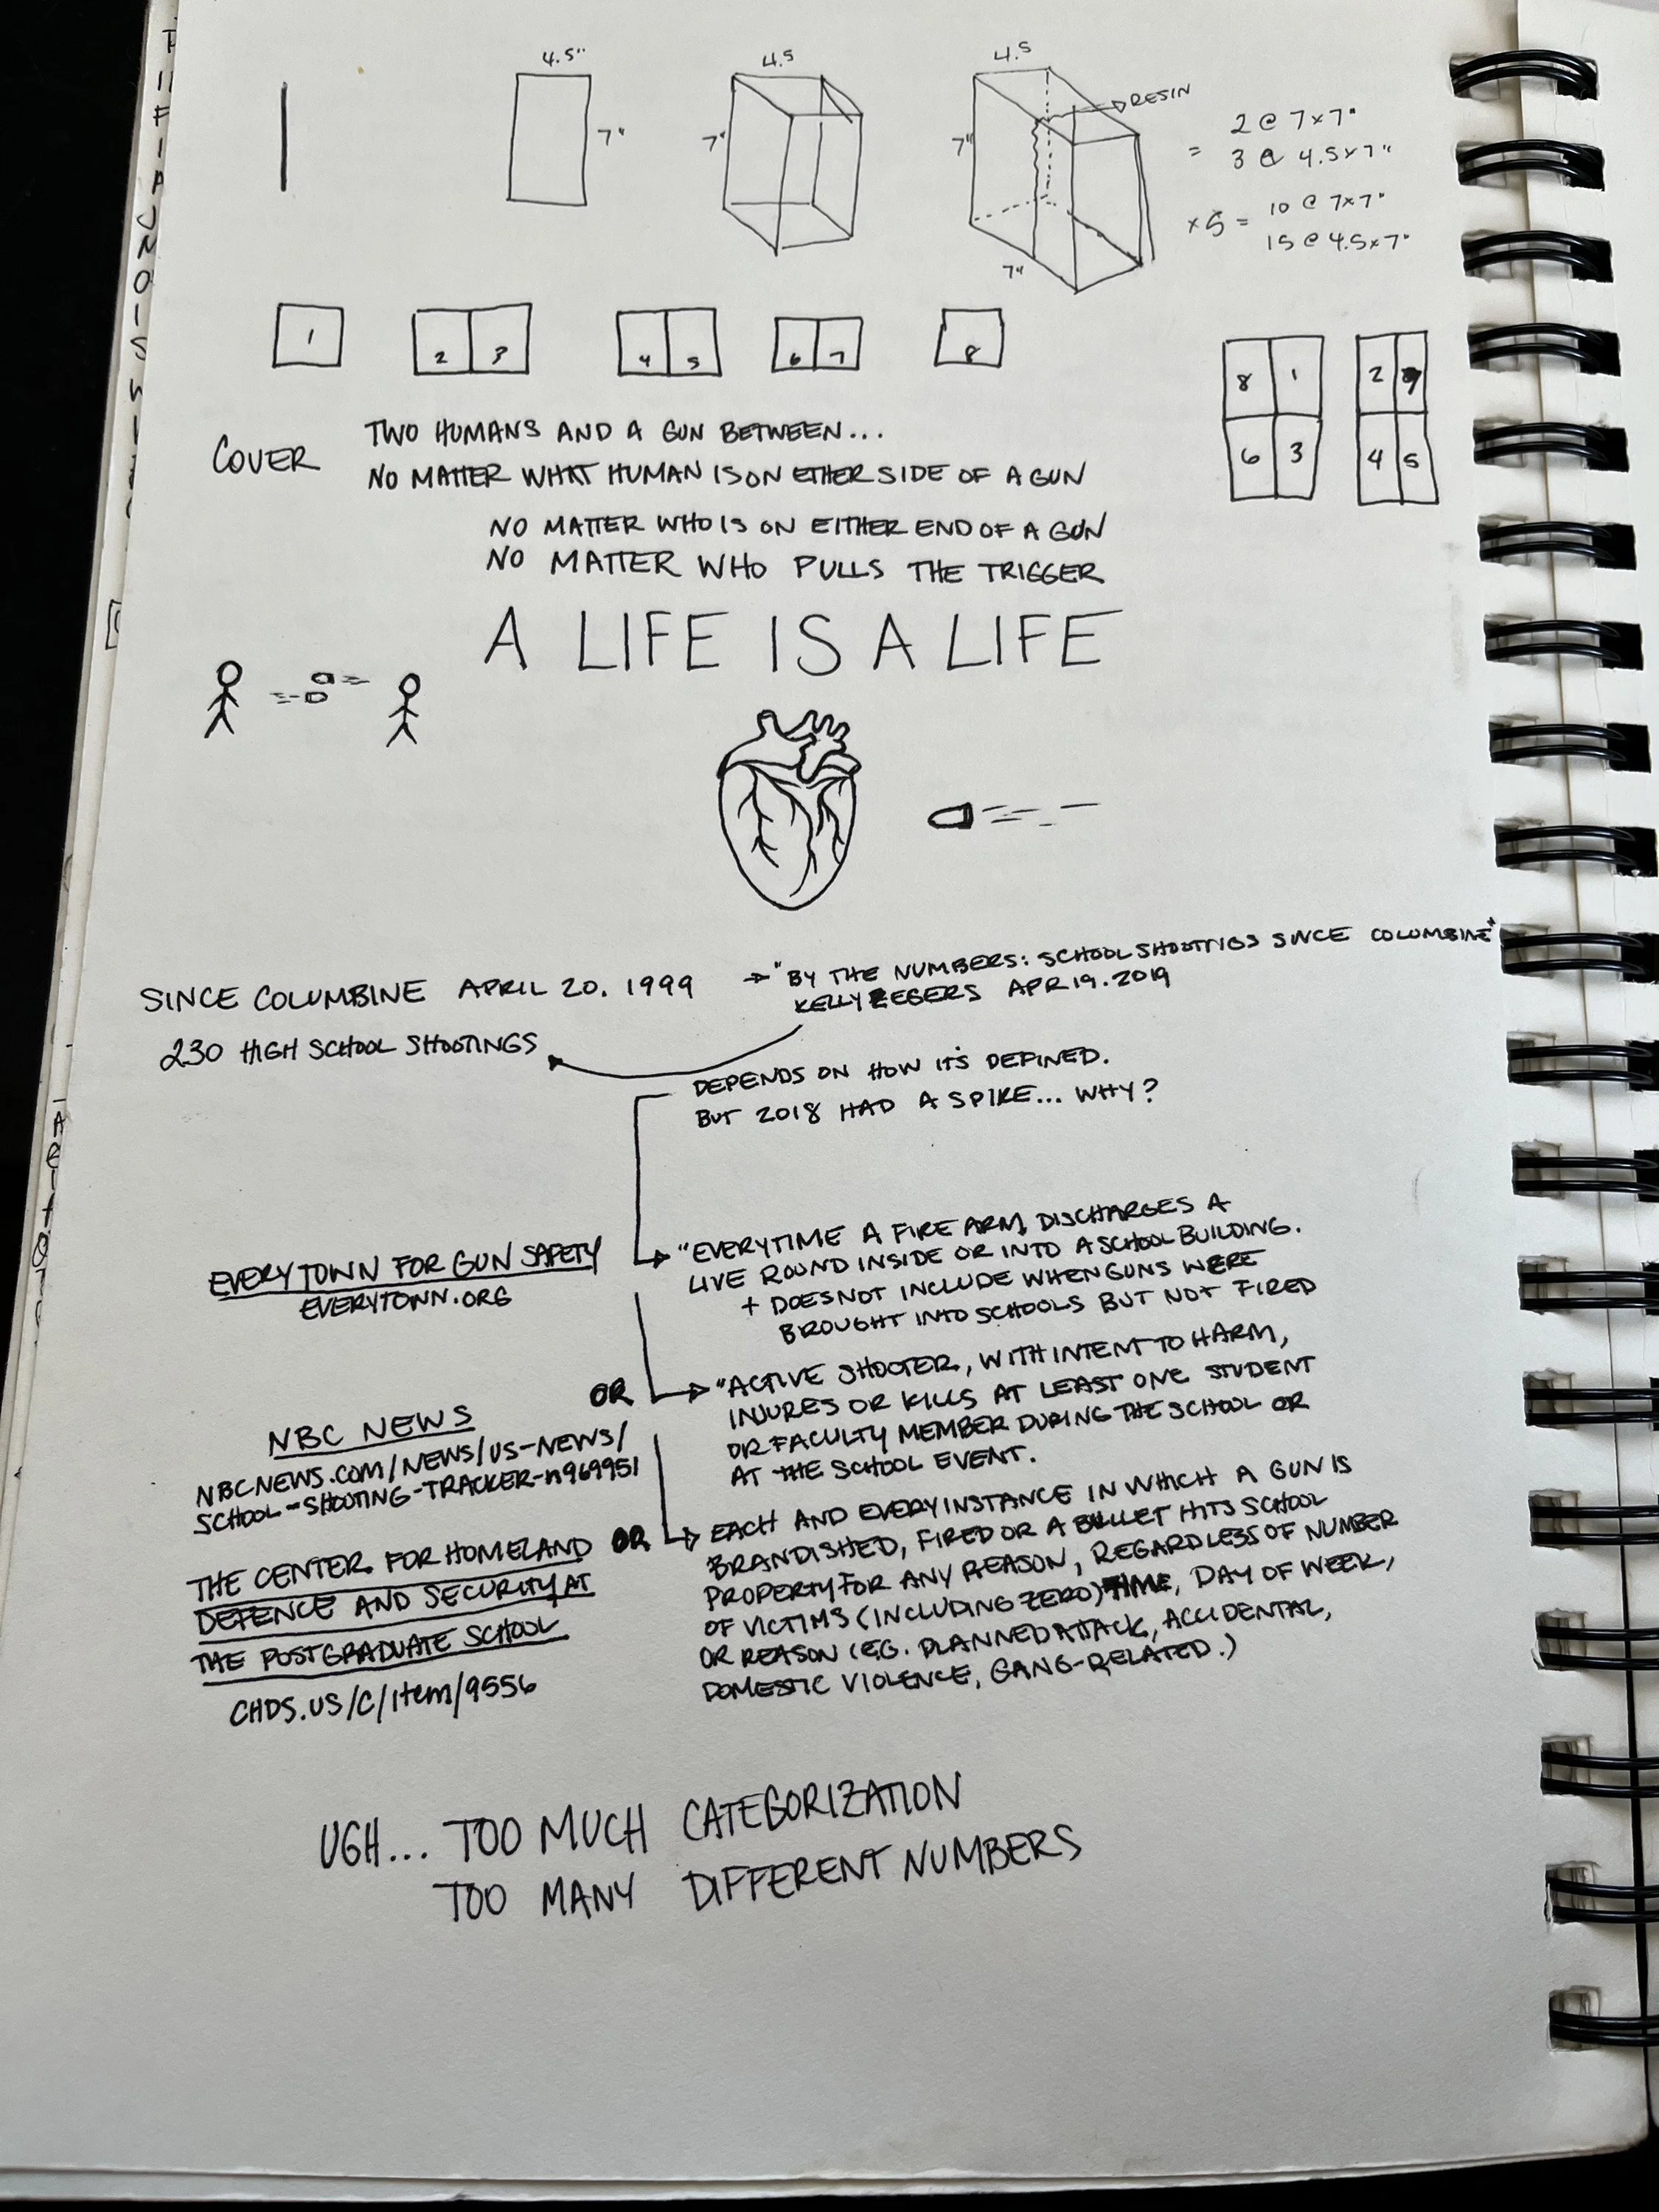 4.5"
7"
4.5
7"
4.5
7"
7"
RESIN
= 2 @ 7x7"
3 @ 4.5x7"
x5 = 10 @ 7x7"
15 @ 4.5x7"
1
2 3
4 5
6 7
8
8 1
6 3
2
4 5
COVER
TWO HUMANS AND A GUN BETWEEN...
NO MATTER WHAT HUMAN IS ON ETHER SIDE OF A GUN
NO MATTER WHO IS ON EITHER END OF A GUN
NO MATTER WHO PULLS THE TRIGGER
A LIFE IS A LIFE
SINCE COLUMBINE APRIL 20. 1999
230 HIGH SCHOOL SHOOTINGS
"BY THE NUMBERS: SCHOOL SHOOTINGS SINCE COLUMBINE"
KELLY APR 19. 2019
DEPENDS ON HOW IT'S DEFINED.
BUT 2018 HAD A SPIKE... WHY?
EVERYTOWN FOR GUN SAFETY
EVERYTOWN.ORG
"EVERYTIME A FIRE ARM DISCHARGES A
LIVE ROUND INSIDE OR INTO A SCHOOL BUILDING.
+ DOES NOT INCLUDE WHEN GUNS WERE
BROUGHT INTO SCHOOLS BUT NOT FIRED
OR
NBC NEWS
NBCNEWS.COM/NEWS/US-NEWS/
SCHOOL-SHOOTING-TRACKER-n969951
"ACTIVE SHOOTER, WITH INTENT TO HARM,
INJURES OR KILLS AT LEAST ONE STUDENT
OR FACULTY MEMBER DURING THE SCHOOL OR
AT THE SCHOOL EVENT.
OR
THE CENTER FOR HOMELAND
DEFENCE AND SECURITY AT
THE POSTGRADUATE SCHOOL
CHDS.US/C/item/9556
EACH AND EVERY INSTANCE IN WHICH A GUN IS
BRANDISHED, FIRED OR A BULLET HITS SCHOOL
PROPERTY FOR ANY REASON, REGARDLESS OF NUMBER
OF VICTIMS (INCLUDING ZERO) TIME, DAY OF WEEK,
OR REASON (E.G. PLANNED ATTACK, ACCIDENTAL,
DOMESTIC VIOLENCE, GANG-RELATED.)
UGH... TOO MUCH CATEGORIZATION
TOO MANY DIFFERENT NUMBERS